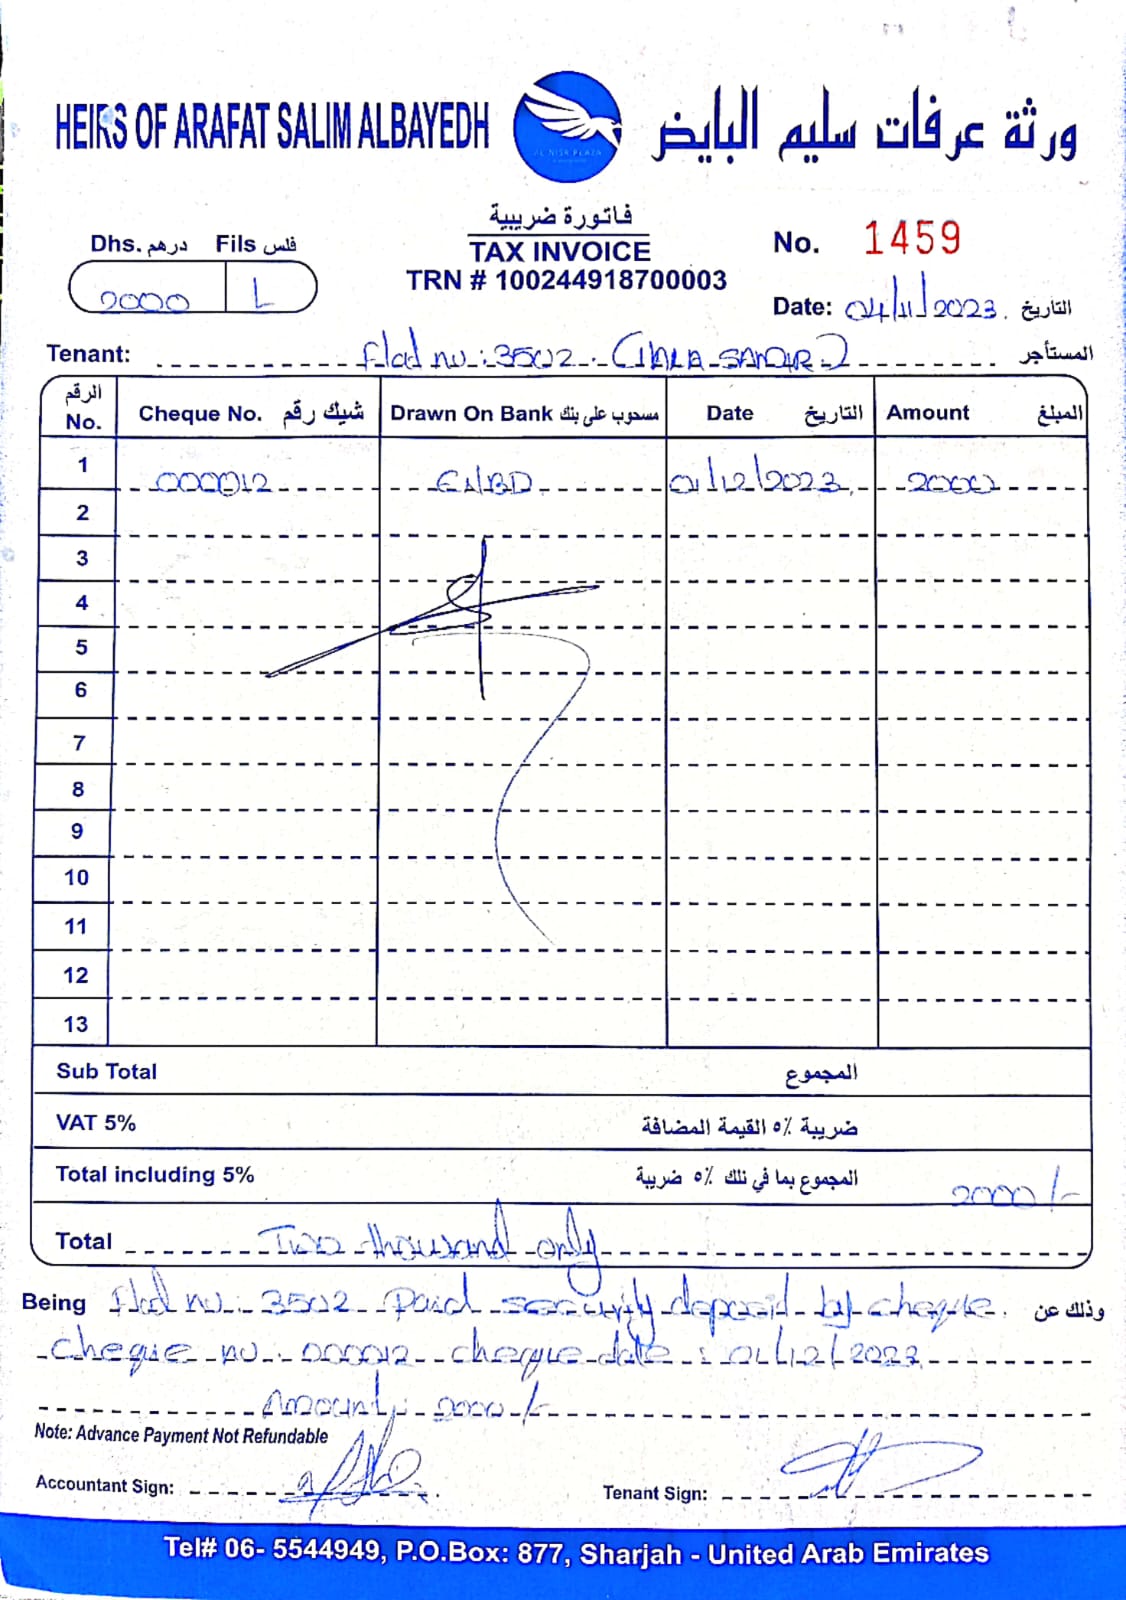 HEIRS OF ARAFAT SALIM ALBAYEDH
AL NISR PLAZA
ورثة عرفات سليم البايض
فاتورة ضريبية
TAX INVOICE
TRN # 100244918700003
Dhs. درهم Fils فلس
2000
No. 1459
Date: 04/11/2023. التاريخ
Tenant: Flat no: 3502. المستأجر
الرقم No. Cheque No. شيك رقم Drawn On Bank مسحوب على بنك Date التاريخ Amount المبلغ
1 000012 ENBD 01/12/2023 2000
2
3
4
5
6
7
8
9
10
11
12
13
Sub Total المجموع
VAT 5% ضريبة ٥٪ القيمة المضافة
Total including 5% المجموع بما في ذلك ٥٪ ضريبة 2000/-
Total Two thousand only
Being Flat no: 3502 Paid security deposit by cheque. وذلك عن
Cheque no: 000012 cheque date: 01/12/2023
Amount: 2000/-
Note: Advance Payment Not Refundable
Accountant Sign: Tenant Sign:
Tel# 06- 5544949, P.O.Box: 877, Sharjah - United Arab Emirates